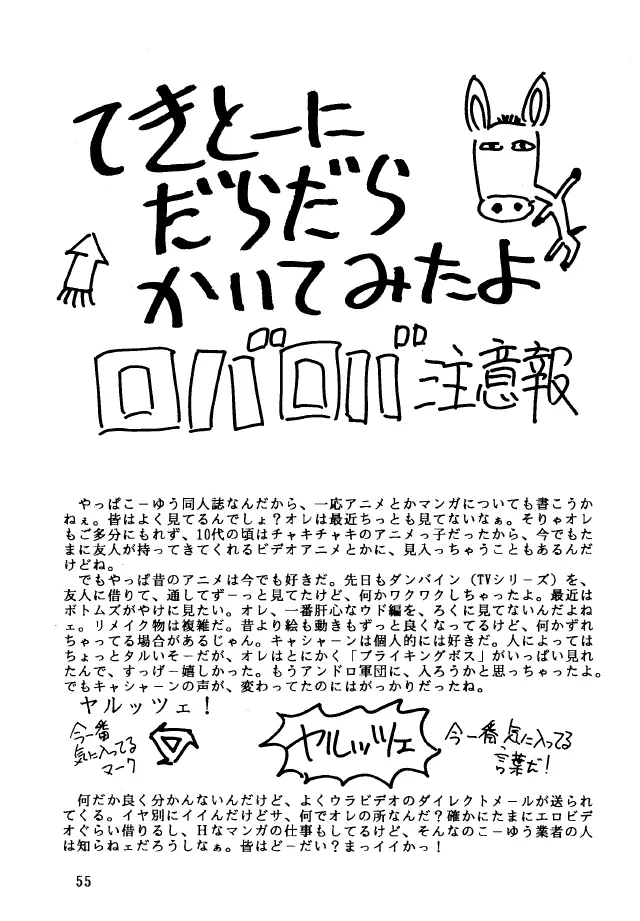 てきとーに
だらだら
かいてみたよ
ロバロバ注意報
やっぱこーゆう同人誌なんだから、一応アニメとかマンガについても書こうか
ねぇ。皆はよく見てるんでしょ？オレは最近ちっとも見てないなぁ。そりゃオレ
もご多分にもれず、10代の頃はチャキチャキのアニメっ子だったから、今でもた
まに友人が持ってきてくれるビデオアニメとかに、見入っちゃうこともあるんだ
けどね。
でもやっぱ昔のアニメは今でも好きだ。先日もダンバイン（TVシリーズ）を、
友人に借りて、通してずーっと見てたけど、何かワクワクしちゃったよ。最近は
ボトムズがやけに見たい。オレ、一番肝心なウド編を、ろくに見てないんだよね
ェ。リメイク物は複雑だ。昔より絵も動きもずっと良くなってるけど、何かずれ
ちゃってる場合があるじゃん。キャシャーンは個人的には好きだ。人によっては
ちょっとタルいそーだが、オレはとにかく「ブライキングボス」がいっぱい見れ
たんで、すっげー嬉しかった。もうアンドロ軍団に、入ろうかと思っちゃったよ。
でもキャシャーンの声が、変わってたのにはがっかりだったね。
ヤルッツェ！
今一番
気に入ってる
マーク
ヤルッツェ
今一番、気に入ってる
言葉だ！
何だか良く分かんないんだけど、よくウラビデオのダイレクトメールが送られ
てくる。イヤ別にイイんだけどサ、何でオレの所なんだ？確かにたまにエロビデ
オぐらい借りるし、Ｈなマンガの仕事もしてるけど、そんなのこーゆう業者の人
は知らねェだろうしなぁ。皆はどーだい？まっイイかっ！
55